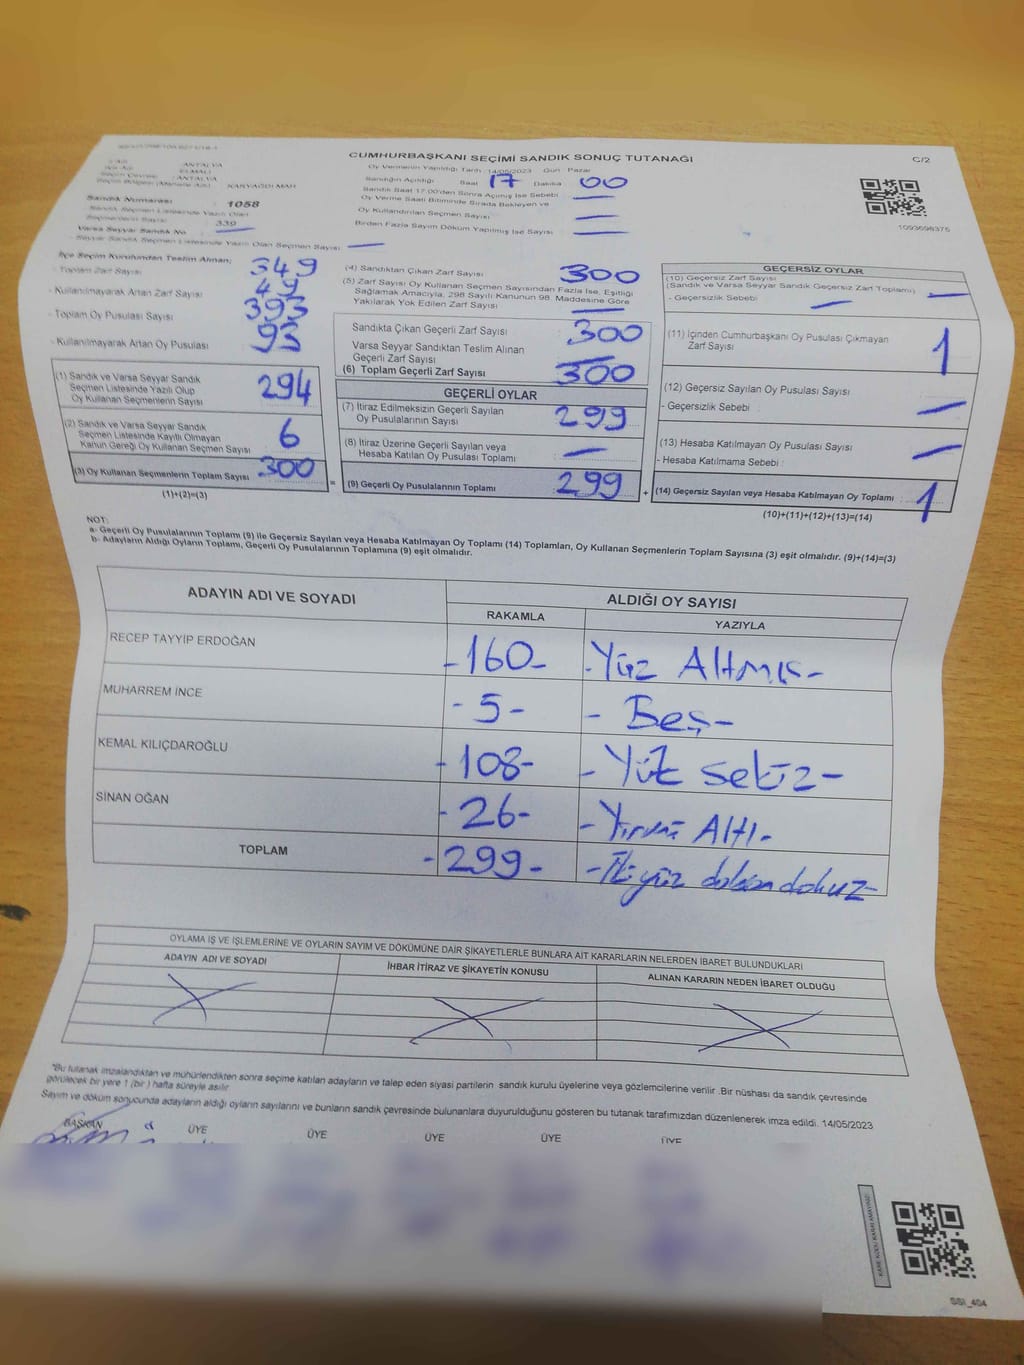 CUMHURBAŞKANI SEÇİMİ SANDIK SONUÇ TUTANAĞI
C/2
Oy Vermenin Yapıldığı Tarih : 14/05/2023 Gün Pazar
Sandığın Açıldığı Saat 17 Dakika 00
Sandık Saat 17.00'den Sonra Açılmış İse Sebebi
Oy Verme Saati Bitiminde Sırada Bekleyen ve
Oy Kullandırılan Seçmen Sayısı
Birden Fazla Sayım Döküm Yapılmış İse Sayısı
1093698375
ANTALYA
ELMALI
ANTALYA
KARYAĞDI MAH
Sandık Numarası 1058
Sandık Seçmen Listesinde Yazılı Olan
Seçmenlerin Sayısı 339
Varsa Seyyar Sandık No
- Seyyar Sandık Seçmen Listesinde Yazılı Olan Seçmen Sayısı
İlçe Seçim Kurulundan Teslim Alınan;
- Toplam Zarf Sayısı 349
- Kullanılmayarak Artan Zarf Sayısı 49
- Toplam Oy Pusulası Sayısı 393
- Kullanılmayarak Artan Oy Pusulası 93
(1) Sandık ve Varsa Seyyar Sandık
Seçmen Listesinde Yazılı Olup
Oy Kullanan Seçmenlerin Sayısı 294
(2) Sandık ve Varsa Seyyar Sandık
Seçmen Listesinde Kayıtlı Olmayan
Kanun Gereği Oy Kullanan Seçmen Sayısı 6
(3) Oy Kullanan Seçmenlerin Toplam Sayısı 300
(1)+(2)=(3)
(4) Sandıktan Çıkan Zarf Sayısı 300
(5) Zarf Sayısı Oy Kullanan Seçmen Sayısından Fazla İse, Eşitliği
Sağlamak Amacıyla, 298 Sayılı Kanunun 98. Maddesine Göre
Yakılarak Yok Edilen Zarf Sayısı
Sandıkta Çıkan Geçerli Zarf Sayısı 300
Varsa Seyyar Sandıktan Teslim Alınan
Geçerli Zarf Sayısı
(6) Toplam Geçerli Zarf Sayısı 300
GEÇERLİ OYLAR
(7) İtiraz Edilmeksizin Geçerli Sayılan
Oy Pusulalarının Sayısı 299
(8) İtiraz Üzerine Geçerli Sayılan veya
Hesaba Katılan Oy Pusulası Toplamı
= (9) Geçerli Oy Pusulalarının Toplamı 299 +
GEÇERSİZ OYLAR
(10) Geçersiz Zarf Sayısı
(Sandık ve Varsa Seyyar Sandık Geçersiz Zarf Toplamı)
- Geçersizlik Sebebi :
(11) İçinden Cumhurbaşkanı Oy Pusulası Çıkmayan
Zarf Sayısı 1
(12) Geçersiz Sayılan Oy Pusulası Sayısı
- Geçersizlik Sebebi :
(13) Hesaba Katılmayan Oy Pusulası Sayısı
- Hesaba Katılmama Sebebi :
(14) Geçersiz Sayılan veya Hesaba Katılmayan Oy Toplamı : 1
(10)+(11)+(12)+(13)=(14)
NOT:
a- Geçerli Oy Pusulalarının Toplamı (9) ile Geçersiz Sayılan veya Hesaba Katılmayan Oy Toplamı (14) Toplamları, Oy Kullanan Seçmenlerin Toplam Sayısına (3) eşit olmalıdır. (9)+(14)=(3)
b- Adayların Aldığı Oyların Toplamı, Geçerli Oy Pusulalarının Toplamına (9) eşit olmalıdır.
ADAYIN ADI VE SOYADI
ALDIĞI OY SAYISI
RAKAMLA YAZIYLA
RECEP TAYYİP ERDOĞAN -160- -Yüz Altmış-
MUHARREM İNCE -5- -Beş-
KEMAL KILIÇDAROĞLU -108- -Yüz sekiz-
SİNAN OĞAN -26- -Yirmi Altı-
TOPLAM -299- -İki yüz doksan dokuz-
OYLAMA İŞ VE İŞLEMLERİNE VE OYLARIN SAYIM VE DÖKÜMÜNE DAİR ŞİKAYETLERLE BUNLARA AİT KARARLARIN NELERDEN İBARET BULUNDUKLARI
ADAYIN ADI VE SOYADI İHBAR İTİRAZ VE ŞİKAYETİN KONUSU ALINAN KARARIN NEDEN İBARET OLDUĞU
"Bu tutanak imzalandıktan ve mühürlendikten sonra seçime katılan adayların ve talep eden siyasi partilerin sandık kurulu üyelerine veya gözlemcilerine verilir .Bir nüshası da sandık çevresinde
görülecek bir yere 1 (bir ) hafta süreyle asılır.
Sayım ve döküm sonucunda adayların aldığı oyların sayılarını ve bunların sandık çevresinde bulunanlara duyurulduğunu gösteren bu tutanak tarafımızdan düzenlenerek imza edildi. 14/05/2023
BAŞKAN ÜYE ÜYE ÜYE ÜYE ÜYE
KARE KODU KARALAMAYINIZ!
SSI_404